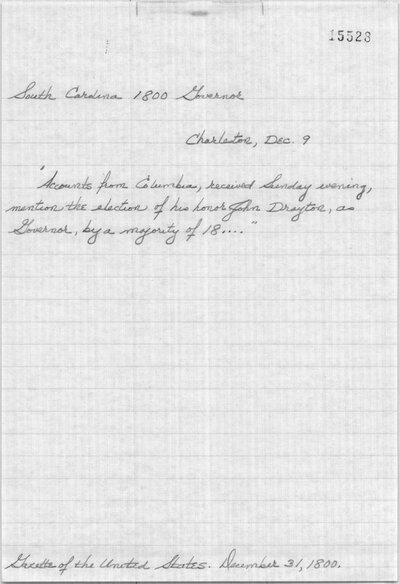 15528
South Carolina 1800 Governor
Charleston, Dec. 9
"Accounts from Columbia, received Sunday evening,
mention the election of his honor John Drayton, as
Governor, by a majority of 18...."
Gazette of the United States. December 31, 1800.